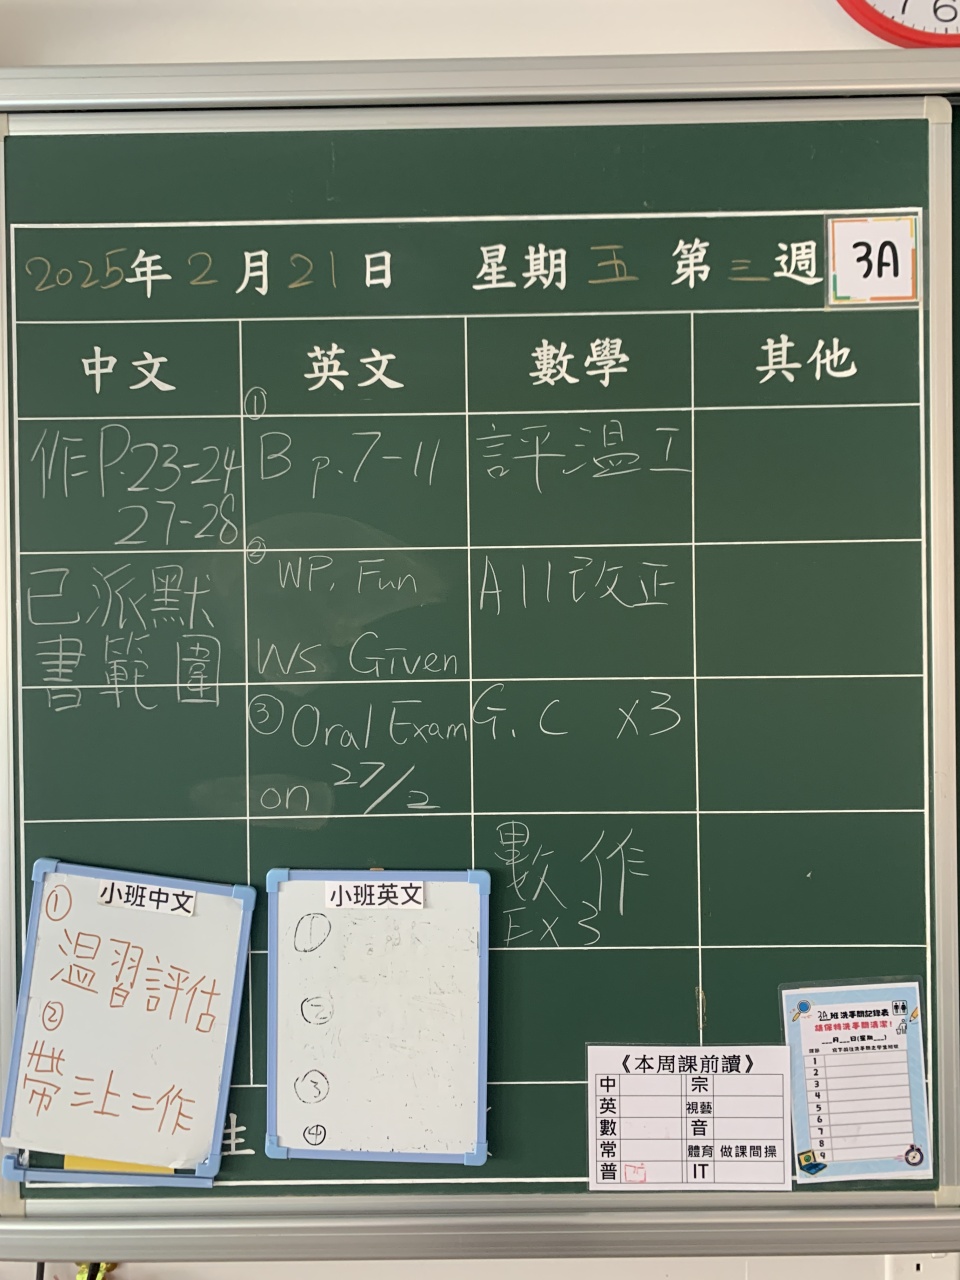 7 6
2025年2月21日 星期五 第三週 3A
中文 英文 數學 其他
作P.23-24
27-28
已派默
書範圍
①
B p.7-11
②
WP, Fun
WS Given
③ Oral Exam
on 27/2
評溫工
All改正
G.C x3
數作
Ex3
小班中文
①
溫習評估
②
帶三上二作
小班英文
①
②
③
④
生
《本周課前讀》
中 宗
英 視藝
數 音
常 體育 做課間操
普 IT
3A班洗手間記錄表
請保持洗手間清潔!
___月___日(星期___)
1
2
3
4
5
6
7
8
9